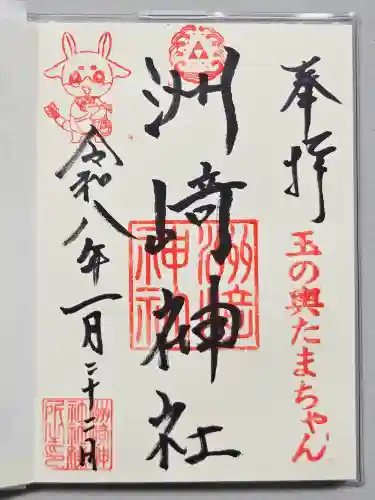 奉拝
玉の輿たまちゃん
洲崎神社
洲崎神社
令和八年一月二十二日